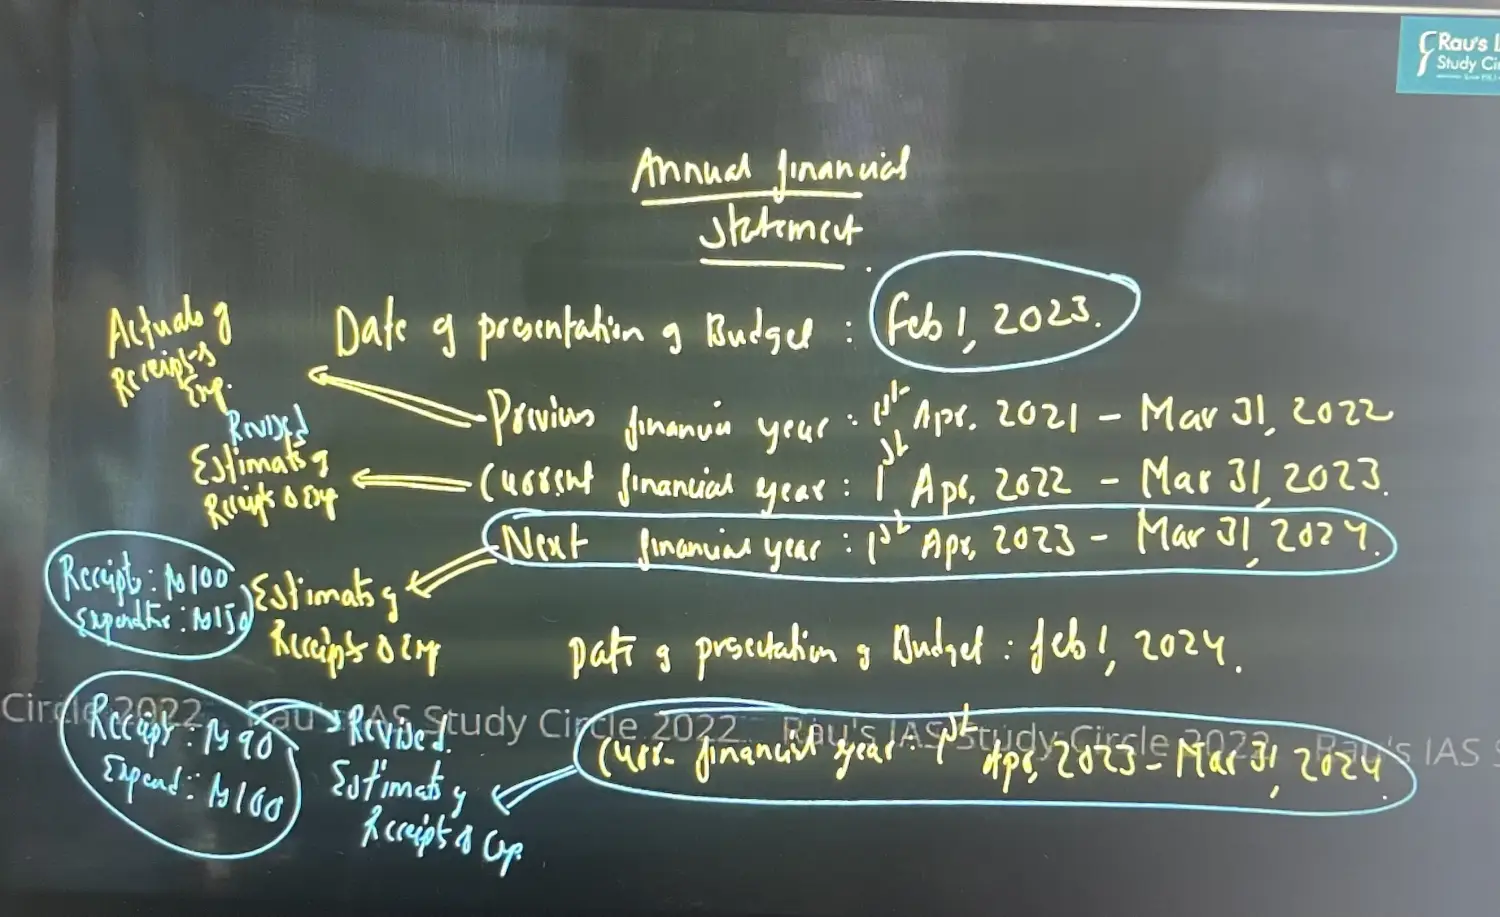 Rau's I
Study Cir
Annual financial
Statement
Date of presentation of Budget : Feb 1, 2023.
Actuals of
Receipts &
Exp.
Previous financial year : 1st Apr. 2021 - Mar 31, 2022
Revised
Estimates of
Receipts & Exp
Current financial year : 1st Apr, 2022 - Mar 31, 2023.
Next financial year : 1st Apr, 2023 - Mar 31, 2024.
Receipts : Rs 100
Expenditure : Rs 150
Estimates of
Receipts & Exp
Date of presentation of Budget : Feb 1, 2024.
Circle 2022 Rau's IAS Study Circle 2022 Rau's IAS Study Circle 2022 Rau's IAS S
Receipt : Rs 90
Expend : Rs 160
Revised.
Estimates of
Receipts & Exp.
Curr. financial year : 1st Apr, 2023 - Mar 31, 2024.